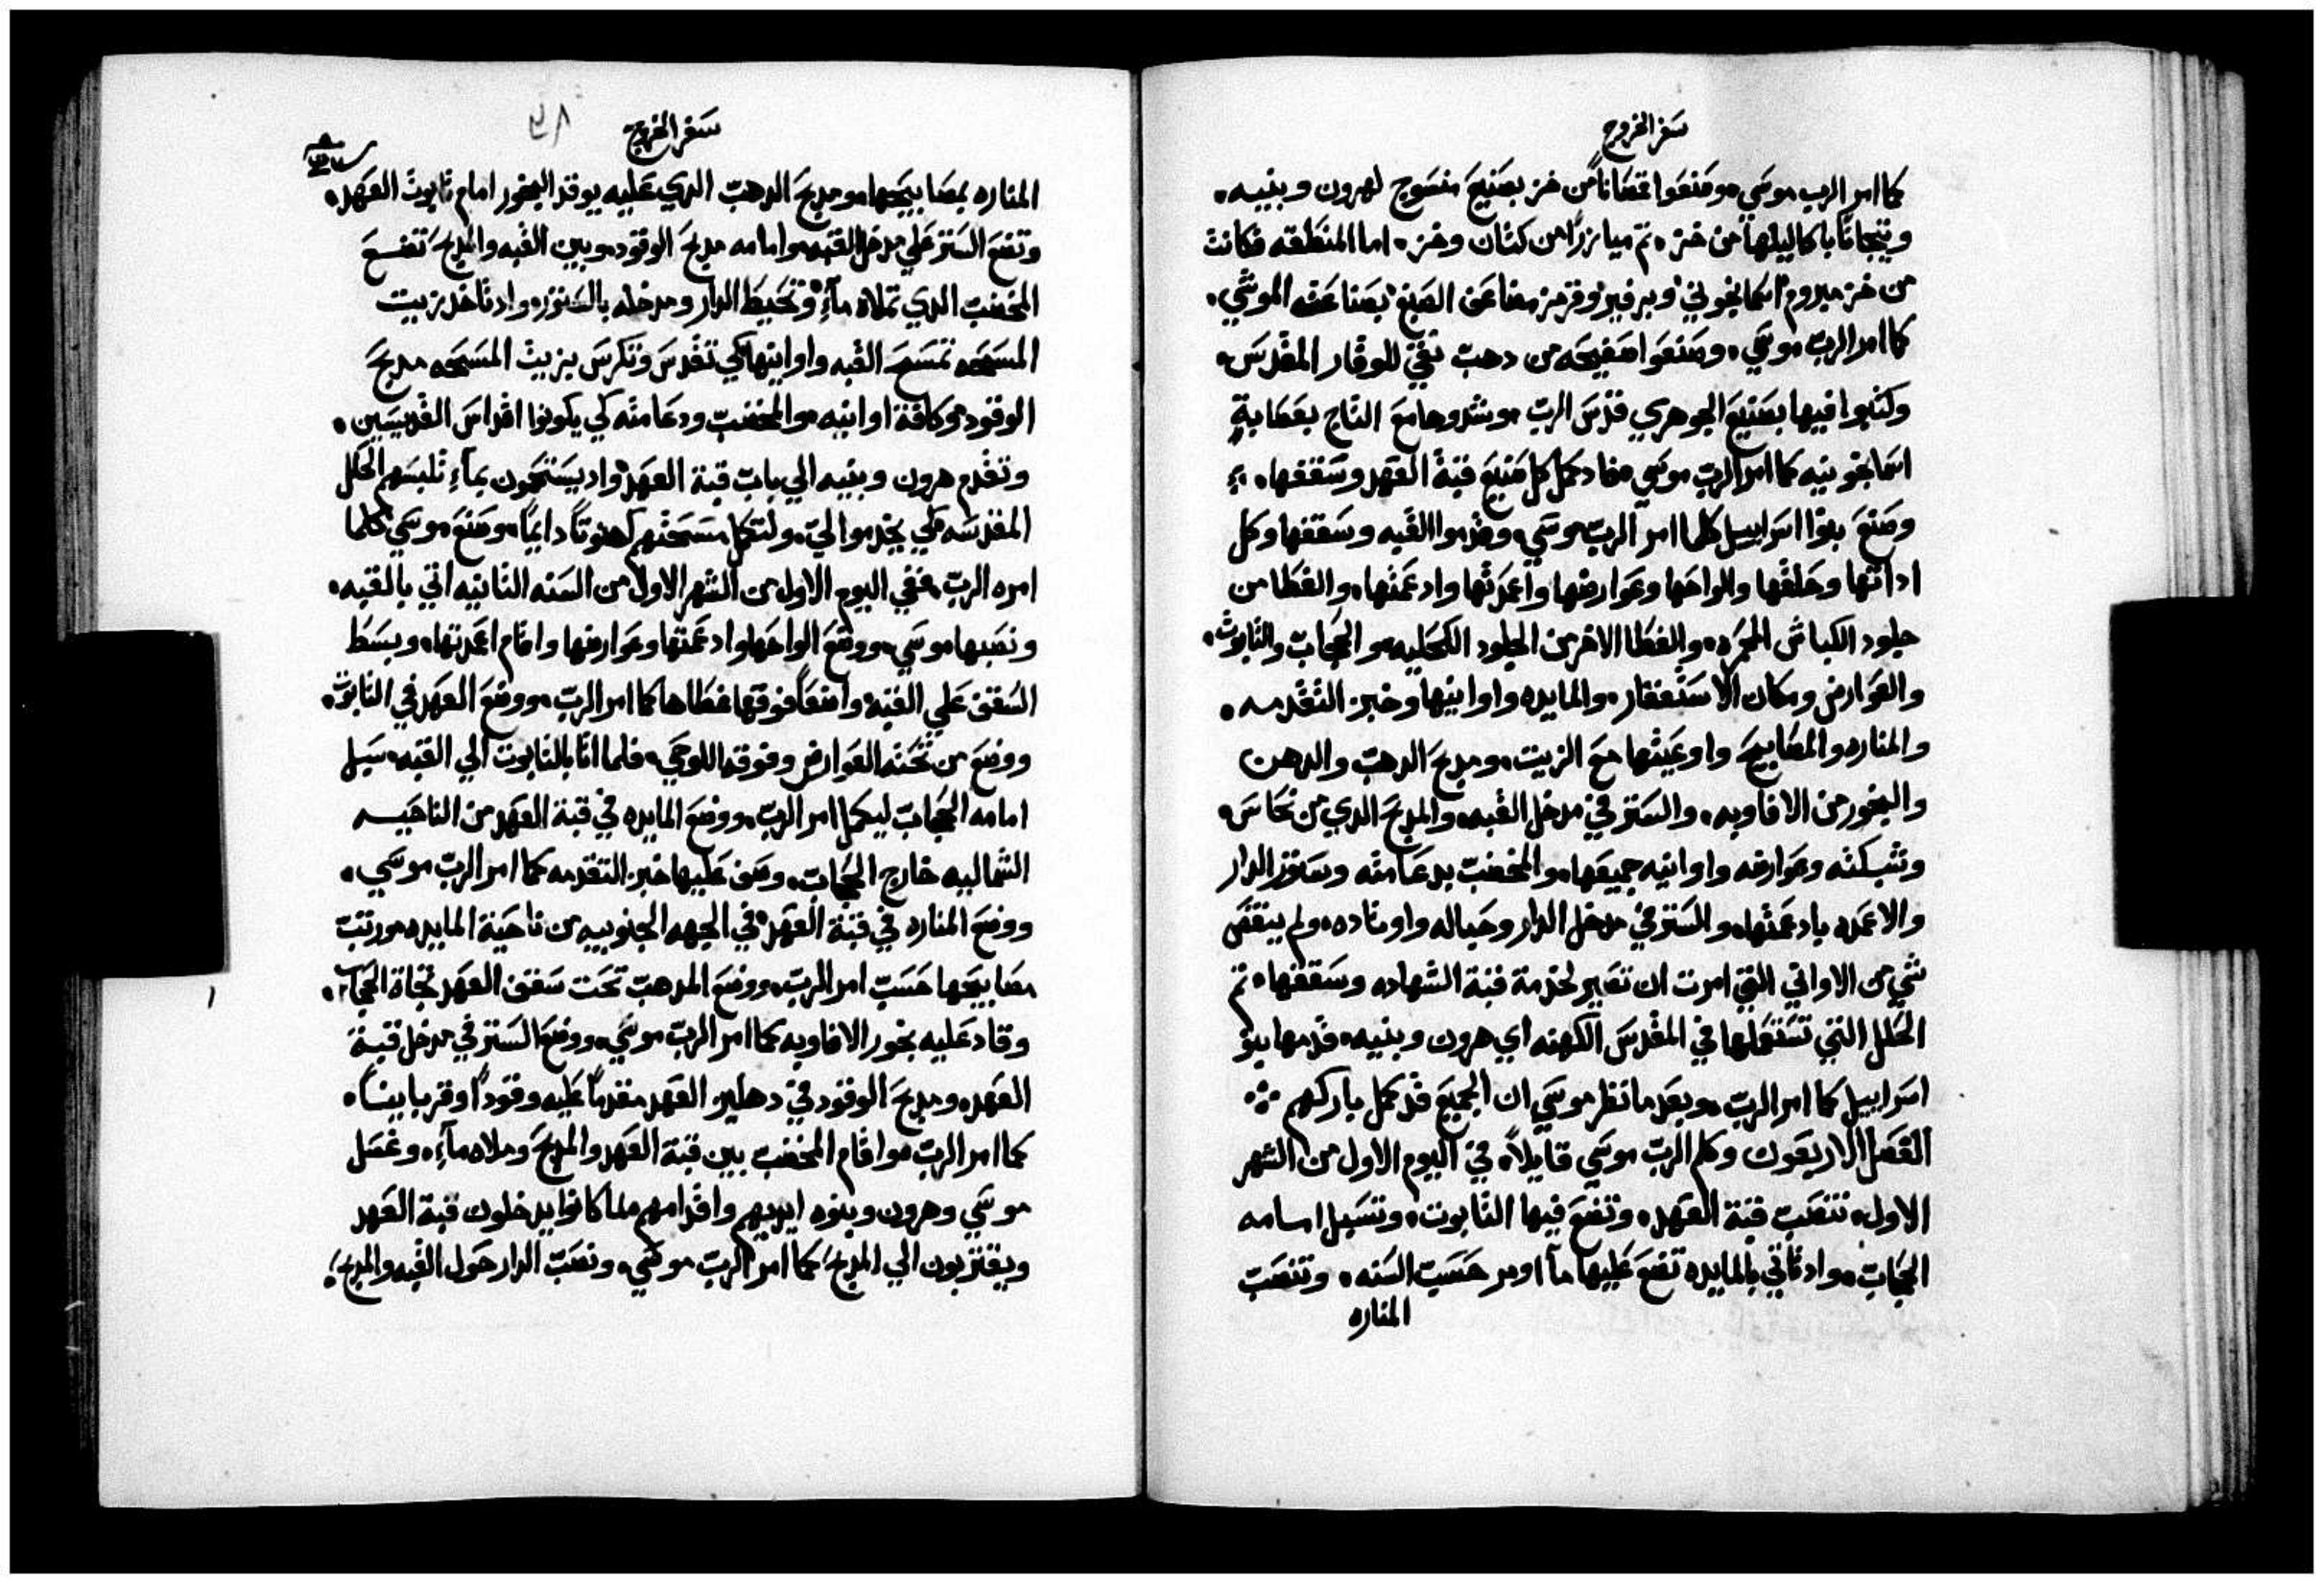 سفر الخروج
كما امر الرب موسي. وصنعوا قمصاناً من خز بصنيع منسوج لهرون وبنيه.
وتيجاناً باكاليلها من خز. ثم ميازراً من كتان وخز. اما المنطقه فكانت
من خز مبروم اسمانجوني وبرفير وقرمز مضاعف الصبغ بصناعة الموشي.
كما امر الرب موسي. وصنعوا صفيحه من دهب نقي للوقار المقدس.
وكتبوا فيها بصنيع الجوهري قدس الرب. وشدوها مع التاج بعصابةٍ
اسمانجونيه كما امر الرب موسي. فاد كمل كل صنيع قبة العهد وسقفها.
وصنع بنوا اسراييل كلما امر الرب موسي. وقدموا القبه وسقفها وكل
اداتها وحلقها والواحها وعوارضها واعمدتها وادعمتها. والغطا من
جلود الكباش المحمره. والغطا الاخر من الجلود الكحليه. والحجاب والتابوت.
والعوارض ومكان الاستغفار. والمايده واوانيها وخبز التقدمه.
والمناره والمصابيح واوعيتها مع الزيت. ومدبح الدهب والدهن
والبخور من الافاويه. والستر في مدخل القبه. والمدبح الدي من نحاس.
وشبكته وعوارضه واوانيه جميعها. والمخضب بدعامته وستور الدار
والاعمده بادعمتها. والستر في مدخل الدار وحباله واوتاده. ولم ينقص
شي من الاواني التي امرت ان تصير لخدمة قبة الشهاده وسقفها. ثم
الحلل التي تستعملها في المقدس الكهنه اي هرون وبنيه. قدمها بنو
اسراييل كما امر الرب. وبعدما نظر موسي ان الجميع قد كمل باركهم
الفصل الاربعون وكلم الرب موسي قايلاً. في اليوم الاول من الشهر
الاول. تنصب قبة العهد. وتضع فيها التابوت. وتسبل امامه
الحجاب. واد تاتي بالمايده تضع عليها ما اومر حسب السنه. وتنصب
المناره
سفر الخروج
المناره بمصابيحها. ومدبح الدهب الدي عليه يوقد البخور امام تابوت العهد.
وتضع الستر علي مدخل القبه. وامامه مدبح الوقود. وبين القبه والمدبح تضع
المخضب الدي تملاه مآءً. وتحيط الدار ومدخله بالستور. واد تاخد زيت
المسحه تمسح القبه واوانيها كي تقدس وتكرس بزيت المسحه مدبح
الوقود. وكافة اوانيه. والمخضب ودعامته كي يكونوا اقداس القديسين.
وتقدم هرون وبنيه الي باب قبة العهد. واد يستحمون بمآءٍ تلبسهم الحلل
المقدسه كي يخدموا لي. ولتكمل مسحتهم كهنوتاً دايماً. وصنع موسي كلما
امره الرب. ففي اليوم الاول من الشهر الاول من السنه الثانيه اتي بالقبه.
ونصبها موسي. ووضع الواحها وادعمتها وعوارضها واقام اعمدتها. وبسط
السقف علي القبه. واضعاً فوقها غطاها كما امر الرب. ووضع العهد في التابوت.
ووضع من تحته العوارض وفوقه اللوحي. فلما اتا بالتابوت الي القبه. سبل
امامه الحجاب ليكمل امر الرب. ووضع المايده في قبة العهد من الناحيه
الشماليه خارج الحجاب. وصف عليها خبز التقدمه كما امر الرب موسي.
ووضع المناره في قبة العهد. في الجهه الجنوبيه من ناحية المايده. ورتب
مصابيحها حسب امر الرب. ووضع المدهب تحت سقف العهد تجاه الحجاب.
وقاد عليه بخور الافاويه كما امر الرب موسي. ووضع الستر في مدخل قبة
العهد. ومدبح الوقود في دهليز العهد مقدماً عليه وقوداً وقربا بيناً.
كما امر الرب. واقام المخضب بين قبة العهد والمدبح وملاه مآءً. وغسل
موسي وهرون وبنوه ايديهم واقدامهم لما كانوا يدخلون قبة العهد
ويقتربون الي المدبح. كما امر الرب موسي. ونصب الدار حول القبه والمدبح.